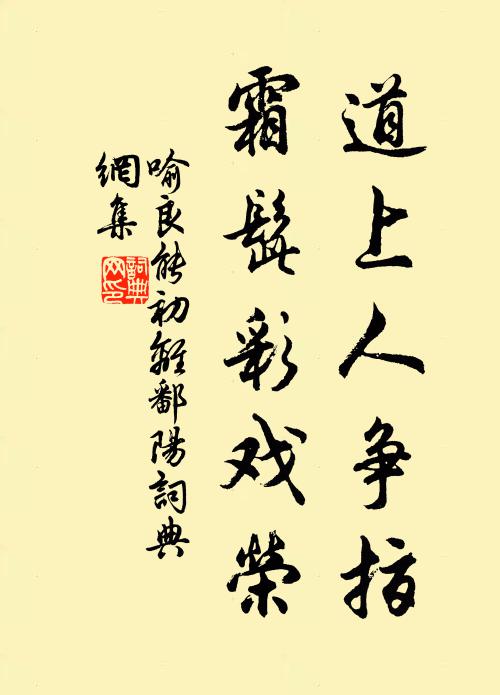 道上人争指
霜髭彩戏榮
喻良能初離鄱陽詞典
網集
詞典
网印